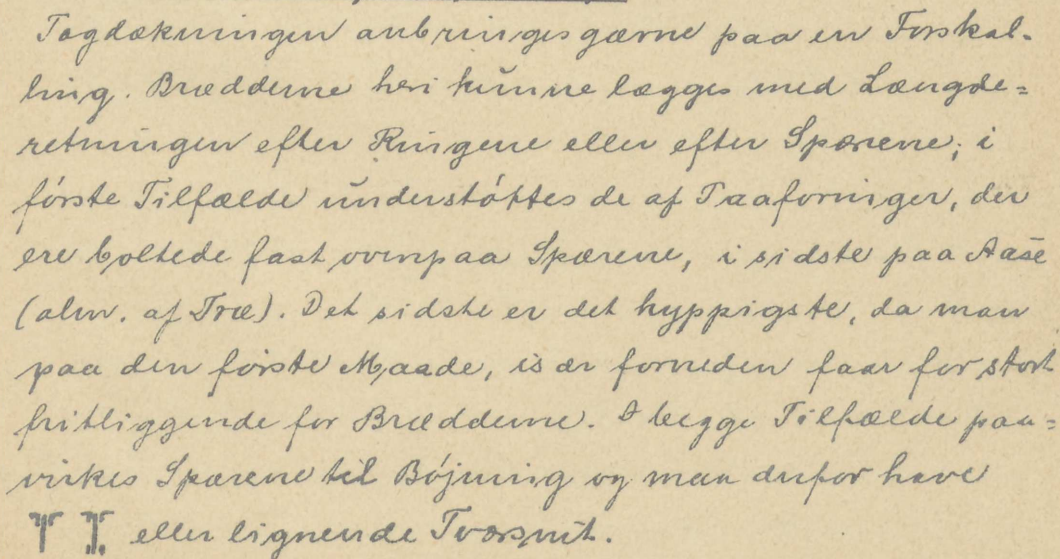 Tagdækningen anbringes gærne paa en Forskal-
ling. Brædderne heri kunne lægges med Længde=
retningen efter Ringene eller efter Spærene; i
første Tilfælde understøttes de af Paaforinger, der
ere boltede fast ovenpaa Spærene, i sidste paa Aase
(alm. af Træ). Det sidste er det hyppigste, da man
paa den første Maade, især forneden faar for stort
fritliggende for Brædderne. I begge Tilfælde paa=
virkes Spærene til Bøjning og maa derfor have
eller lignende Tværsnit.